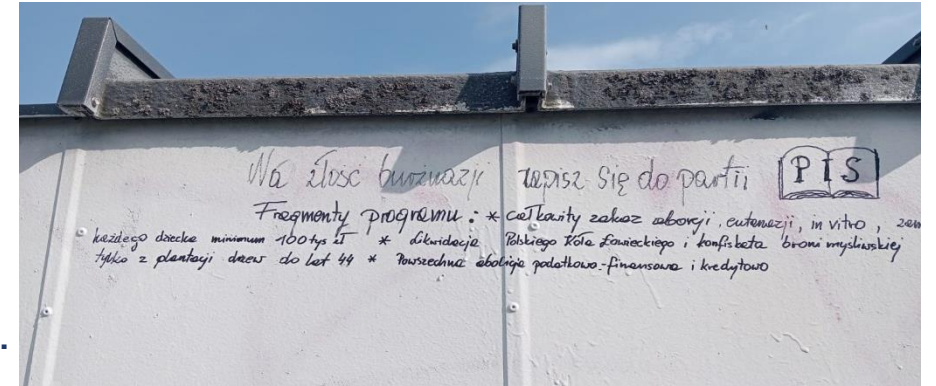 Na złość burżuazji zapisz się do partii PIS
Fragmenty programu: * całkowity zakaz aborcji, eutanazji, in vitro,
każdego dziecka minimum 100 tys zł * Likwidacja Polskiego Koła Łowieckiego i konfiskata broni myśliwskiej
tylko z plantacji drzew do lat 44 * Powszechna abolicja podatkowo-finansowa i kredytowo